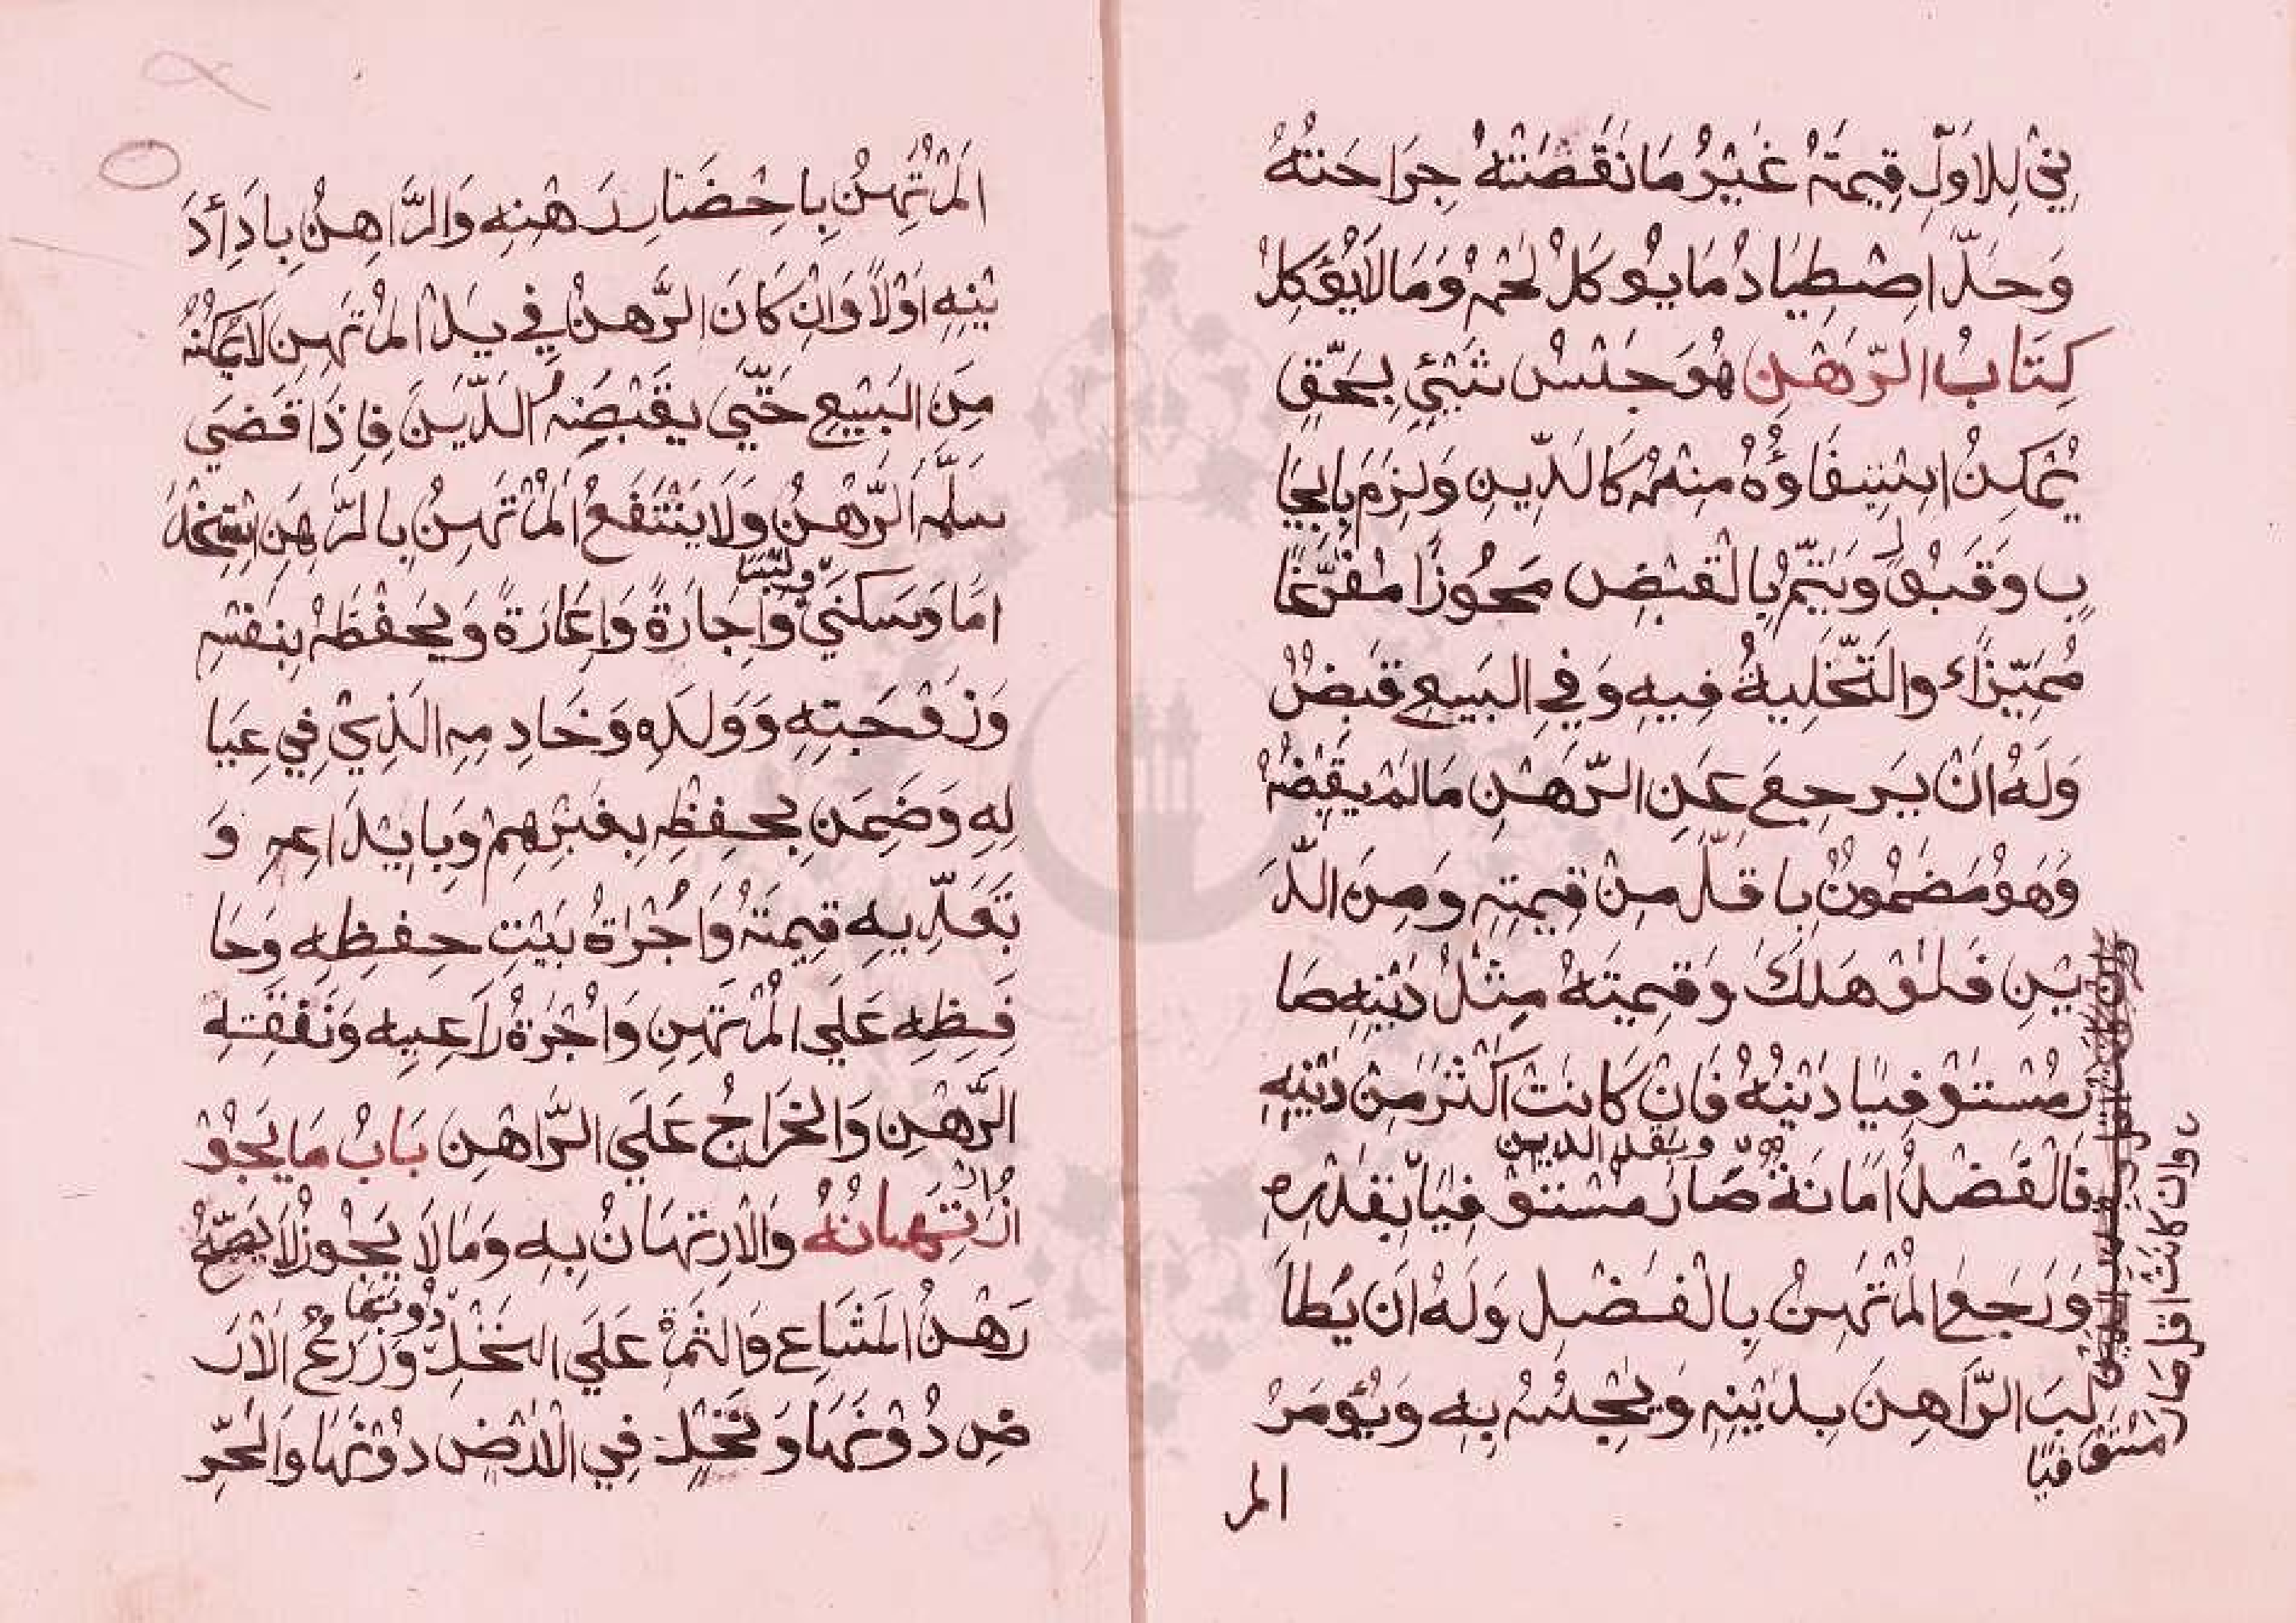 نِي لِلاَوَّلِ قِيمَةُ غَيْرُ مَا نَقَصَتْهُ جِرَاحَتُهُ
وَحَلَّ اصْطِيَادُ مَا يُوكَلُ لحْمُهُ وَمَا لَا يُؤكَلُ
كِتَابُ الرَّهْنِ هُوَ حَبْسُ شَيْئٍ بِحَقٍّ
يُمْكِنُ اسْتِيفَاؤُهُ مِنْهُ كَالدَّينِ وَلَزِمَ بِايجَا
بٍ وَقَبُولٍ وَيَتِمُّ بِالْقَبْضِ مَحُوزًا مُفَرَّغًا
مُمَيَّزًا وَالتَّخْلِيةُ فِيهِ وَفِي البَيعِ قَبْضٌ
وَلَهُ اَنْ يَرجِعَ عَنِ الرَّهْنِ مَا لَمْ يَقْبِضْهُ
وَهَوُ مَضْمُونٌ بِاقَلَّ مِنْ قِيمَتِهِ وَمِنَ الدَّ
يْنِ فَلَوْ هَلَكَ وَقِيمَتُهُ مِثْلُ دَيْنِهِ صَا
رَ مُسْتَوْفِيًا دَيْنَهُ فَانْ كَانَتْ اَكْثَرَ مِنْ دَيْنِهِ
فَالْفَضْلُ اَمَانَةٌ وبقدر الدين صَارَ مُسْتَوْفِيًا بِقَدْرِهِ
وَرَجَعَ المُرْتَهِنُ بِالْفَضْلِ وَلَهُ اَن يُطَا
لِبَ الرَّاهِنَ بِدَيْنِهِ وَيحْبِسُهُ بِهِ وَيُؤمَرُ
وان كانَتْ اقل صار مسْتَوفيًا
المر
المُرْتَهِنُ بِاحْضَارِ رَهْنِهِ وَالرَّاهِنُ بِادَأِ دَ
يْنِهِ اَوَّلاً وَانْ كَانَ الرَّهْنُ فِي يَدِ المُرْتَهِنِ لَا يمَكِّنُهُ
مِنَ البَيْعِ حَتَّي يَقْبِضَهُ الدَّينَ فَاِذَا قَضَي
سلَّمَ الرَّهْنُ وَلَا يَنْتَفِعُ المُرْتَهِنُ بِالرَّهْنِ اسْتِخْدَ
امًا وَسكنَي ولُبْسًا وَاِجَارَةً وَاِعَارَةً وَيَحْفَظُهُ بِنَفْسِهِ
وَزَوْجَتِهِ وَوَلَدِهِ وَخَادِمِهِ الَّذِيْ فِي عِيَا
لِهِ وَضَمِنَ بِحِفْظِهِ بِغَيْرِهِمْ وَبِايْدَاعِهِ وَ
بَتَعَدِّيهِ قِيمَتَهُ وَاُجْرَةُ بَيْتِ حِفظِهِ وَحَا
فِظِهِ عَلَي المُرْتَهِنِ وَاُجْرَةُ رَاعِيهِ وَنَفَقَتِهِ
الرَّهْنِ وَالخَرَاجُ عَلَي الرَّاهِنِ بَابُ مَا يَجُوْ
زُ ارْتِهَانُهُ وَالارتِهَانُ بِهِ وَمَا لَا يَجُوْزُ لَا يَصِحُّ
رَهْنُ المَشَاعِ وَالثَّمَرَةُ عَلَي النَخْلِ دُونهَا وَزَرْعُ الاَرَ
ضِ دُوْنَهَا وَنَخْلٍ فِي الاَرْضِ دُوْنَهَا وَالحُرِّ